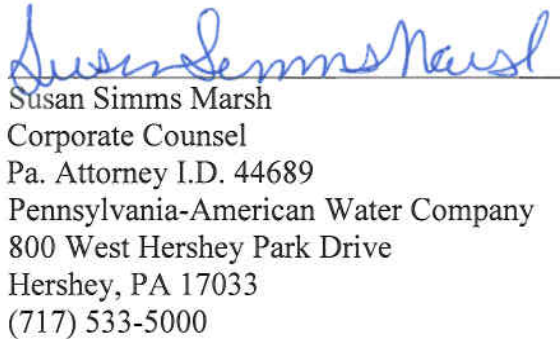 Susan Simms Marsh
Susan Simms Marsh
Corporate Counsel
Pa. Attorney I.D. 44689
Pennsylvania-American Water Company
800 West Hershey Park Drive
Hershey, PA 17033
(717) 533-5000